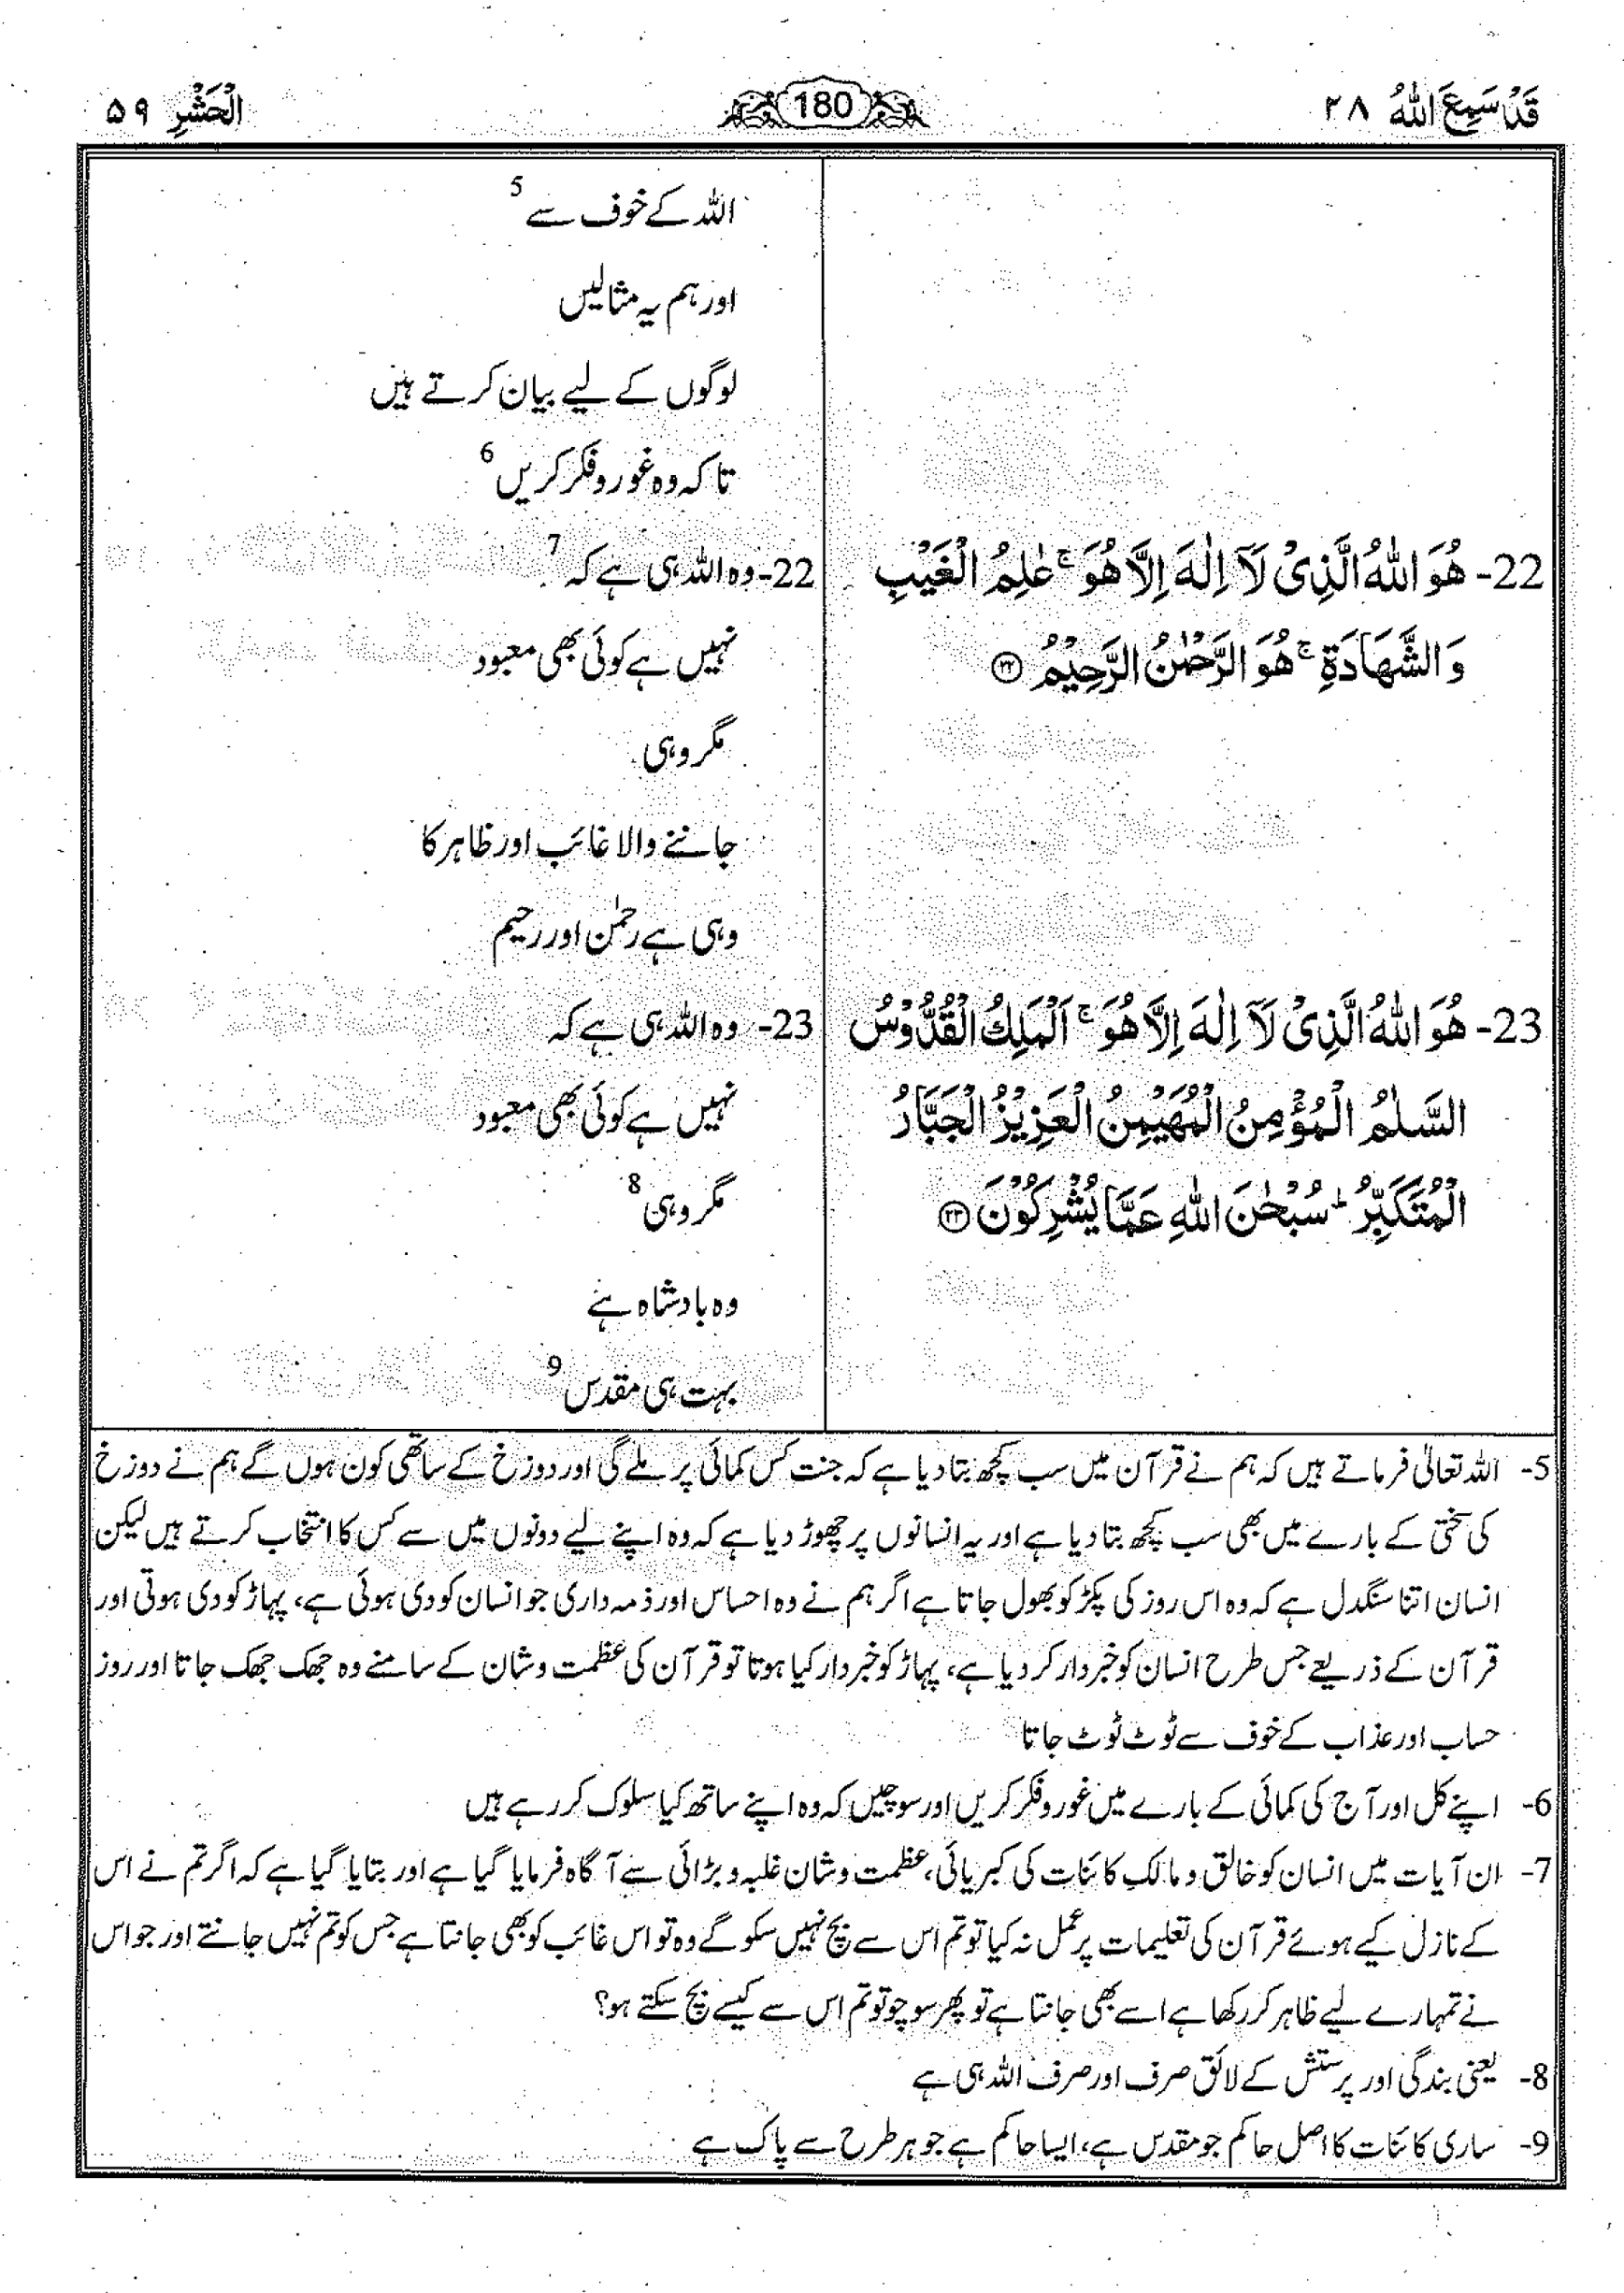 قَدْ سَمِعَ اللّٰهُ ۲۸
180
الْحَشْرِ ۵۹
22- هُوَ اللّٰهُ الَّذِىْ لَآ اِلٰهَ اِلَّا هُوَ ۚ عٰلِمُ الْغَيْبِ
وَالشَّهَادَةِ ۚ هُوَ الرَّحْمٰنُ الرَّحِيْمُ ﴿۲۲﴾
23- هُوَ اللّٰهُ الَّذِىْ لَآ اِلٰهَ اِلَّا هُوَ ۚ اَلْمَلِكُ الْقُدُّوْسُ
السَّلٰمُ الْمُؤْمِنُ الْمُهَيْمِنُ الْعَزِيْزُ الْجَبَّارُ
الْمُتَكَبِّرُ ؕ سُبْحٰنَ اللّٰهِ عَمَّا يُشْرِكُوْنَ ﴿۲۳﴾
اللہ کے خوف سے 5
اور ہم یہ مثالیں
لوگوں کے لیے بیان کرتے ہیں
تاکہ وہ غور و فکر کریں 6
22- وہ اللہ ہی ہے کہ 7
نہیں ہے کوئی بھی معبود
مگر وہی
جاننے والا غائب اور ظاہر کا
وہی ہے رحمٰن اور رحیم
23- وہ اللہ ہی ہے کہ
نہیں ہے کوئی بھی معبود
مگر وہی 8
وہ بادشاہ ہے
بہت ہی مقدس 9
5- اللہ تعالیٰ فرماتے ہیں کہ ہم نے قرآن میں سب کچھ بتا دیا ہے کہ جنت کس کمائی پر ملے گی اور دوزخ کے ساتھی کون ہوں گے ہم نے دوزخ
کی سختی کے بارے میں بھی سب کچھ بتا دیا ہے اور یہ انسانوں پر چھوڑ دیا ہے کہ وہ اپنے لیے دونوں میں سے کس کا انتخاب کرتے ہیں لیکن
انسان اتنا سنگدل ہے کہ وہ اس روز کی پکڑ کو بھول جاتا ہے اگر ہم نے وہ احساس اور ذمہ داری جو انسان کو دی ہوئی ہے، پہاڑ کو دی ہوتی اور
قرآن کے ذریعے جس طرح انسان کو خبردار کر دیا ہے، پہاڑ کو خبردار کیا ہوتا تو قرآن کی عظمت و شان کے سامنے وہ جھک جھک جاتا اور روز
حساب اور عذاب کے خوف سے ٹوٹ ٹوٹ جاتا
6- اپنے کل اور آج کی کمائی کے بارے میں غور و فکر کریں اور سوچیں کہ وہ اپنے ساتھ کیا سلوک کر رہے ہیں
7- ان آیات میں انسان کو خالق و مالکِ کائنات کی کبریائی، عظمت و شان غلبہ و بڑائی سے آگاہ فرمایا گیا ہے اور بتایا گیا ہے کہ اگر تم نے اس
کے نازل کیے ہوئے قرآن کی تعلیمات پر عمل نہ کیا تو تم اس سے بچ نہیں سکو گے وہ تو اس غائب کو بھی جانتا ہے جس کو تم نہیں جانتے اور جو اس
نے تمہارے لیے ظاہر کر رکھا ہے اسے بھی جانتا ہے تو پھر سوچو تو تم اس سے کیسے بچ سکتے ہو؟
8- یعنی بندگی اور پرستش کے لائق صرف اور صرف اللہ ہی ہے
9- ساری کائنات کا اصل حاکم جو مقدس ہے، ایسا حاکم ہے جو ہر طرح سے پاک ہے